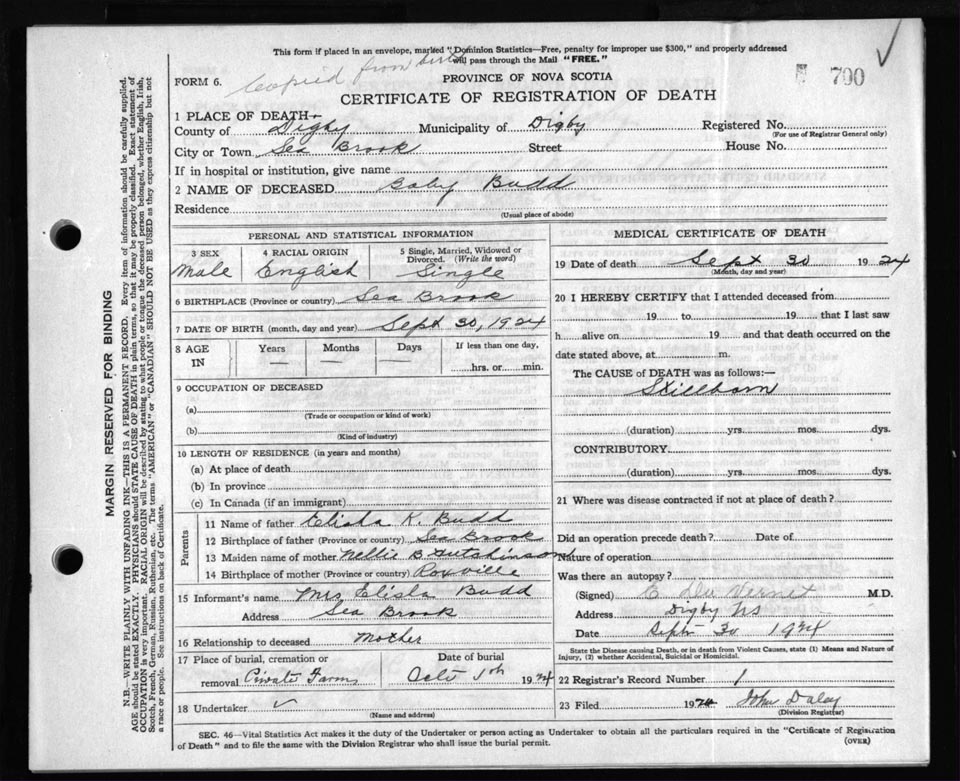 This form if placed in an envelope, marked "Dominion Statistics—Free, penalty for improper use $300," and properly addressed
will pass through the Mail "FREE."
FORM 6. Copied from birth
PROVINCE OF NOVA SCOTIA
700
CERTIFICATE OF REGISTRATION OF DEATH
1 PLACE OF DEATH—
County of Digby Municipality of Digby Registered No.
(For use of Registrar General only)
City or Town Sea Brook Street House No.
If in hospital or institution, give name
2 NAME OF DECEASED Baby Budd
Residence
(Usual place of abode)
PERSONAL AND STATISTICAL INFORMATION
3 SEX 4 RACIAL ORIGIN 5 Single, Married, Widowed or Divorced. (Write the word)
Male English Single
6 BIRTHPLACE (Province or country) Sea Brook
7 DATE OF BIRTH (month, day and year) Sept 30, 1924
8 AGE IN Years Months Days If less than one day,
— — — hrs. or min.
9 OCCUPATION OF DECEASED
(a)
(Trade or occupation or kind of work)
(b)
(Kind of industry)
10 LENGTH OF RESIDENCE (in years and months)
(a) At place of death
(b) In province
(c) In Canada (if an immigrant)
Parents
11 Name of father Elisha K. Budd
12 Birthplace of father (Province or country) Sea Brook
13 Maiden name of mother Nellie B Hutchinson
14 Birthplace of mother (Province or country) Roxville
15 Informant's name Mrs Elisha Budd
Address Sea Brook
16 Relationship to deceased Mother
17 Place of burial, cremation or removal Private Farm Date of burial Oct 1st 1924
18 Undertaker ✓
(Name and address)
MEDICAL CERTIFICATE OF DEATH
19 Date of death Sept 30 1924
(Month, day and year)
20 I HEREBY CERTIFY that I attended deceased from
19 to 19 that I last saw
h alive on 19 and that death occurred on the
date stated above, at m.
The CAUSE of DEATH was as follows:—
Stillborn
(duration) yrs. mos. dys.
CONTRIBUTORY
(duration) yrs. mos. dys.
21 Where was disease contracted if not at place of death?
Did an operation precede death? Date of
Nature of operation
Was there an autopsy?
(Signed) E Du Vernet M.D.
Address Digby NS
Date Sept 30 1924
State the Disease causing Death, or in death from Violent Causes, state (1) Means and Nature of
Injury, (2) whether Accidental, Suicidal or Homicidal.
22 Registrar's Record Number 1
23 Filed 1924 John Daley
(Division Registrar)
SEC. 46—Vital Statistics Act makes it the duty of the Undertaker or person acting as Undertaker to obtain all the particulars required in the "Certificate of Registration
of Death" and to file the same with the Division Registrar who shall issue the burial permit. (OVER)
MARGIN RESERVED FOR BINDING
N.B.—WRITE PLAINLY WITH UNFADING INK—THIS IS A PERMANENT RECORD. Every item of information should be carefully supplied.
AGE should be stated EXACTLY. PHYSICIANS should STATE CAUSE OF DEATH in plain terms, so that it may be properly classified. Exact statement of
OCCUPATION is very important. RACIAL ORIGIN will be described by stating to what people or tongue the deceased person belonged, whether English, Irish,
Scotch, French, German, Russian, Ruthenian, etc. The terms "AMERICAN" or "CANADIAN" SHOULD NOT BE USED as they express citizenship but not
a race or people. See instructions on back of Certificate.